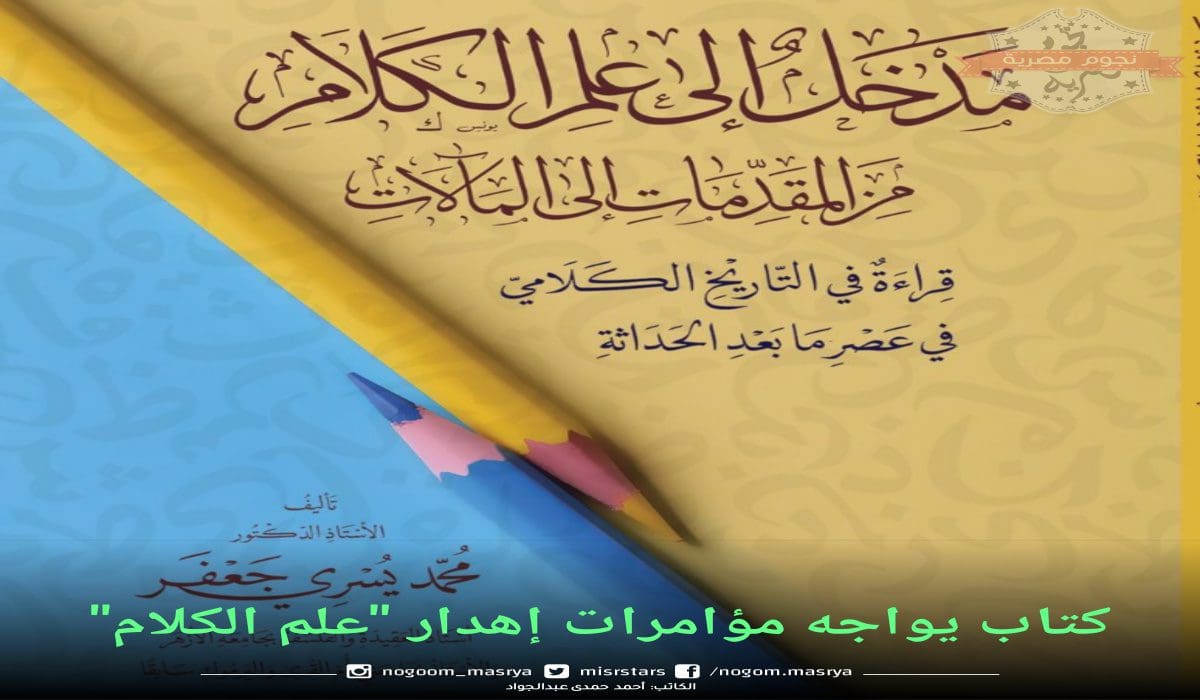 نجوم مصرية
مَدْخَلٌ إلى عِلمِ الكَلَامِ
يونس ك
مِنَ المُقَدِّمَاتِ إلى المَآلَاتِ
قِرَاءَةٌ في التَّارِيْخِ الكَلَاميّ
في عَصْرِ مَا بَعْدِ الحَدَاثةِ
تَأليفُ
الأسْتَاذِ الدّكْتُور
مُحَمَّد يُسْرِي جَعْفَر
كتاب يواجه مؤامرات إهدار "علم الكلام"
أستاذ العقيدة والفلسفة بجامعة الأزهر
nogoom_masrya misrstars /nogom.masrya
الكاتب: أحمد حمدى عبدالجواد